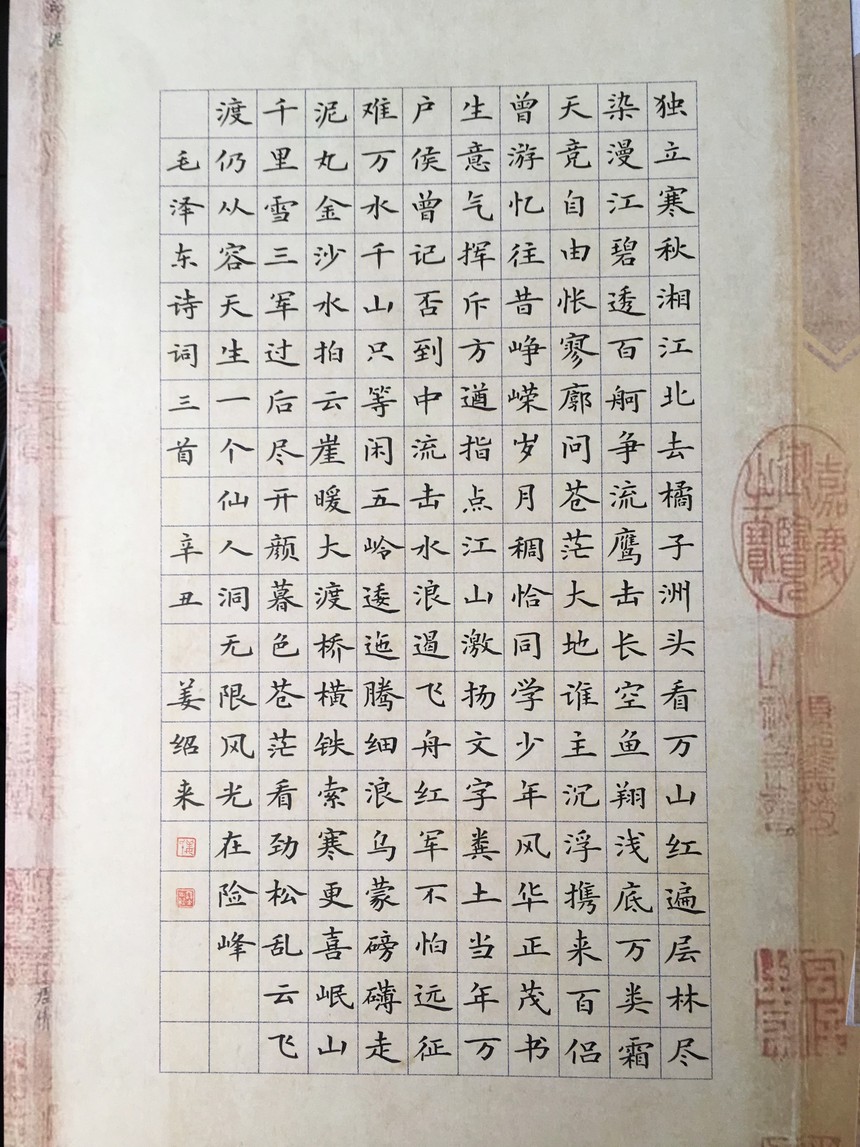 独立寒秋湘江北去橘子洲头看万山红遍层林尽
染漫江碧透百舸争流鹰击长空鱼翔浅底万类霜
天竞自由怅寥廓问苍茫大地谁主沉浮携来百侣
曾游忆往昔峥嵘岁月稠恰同学少年风华正茂书
生意气挥斥方遒指点江山激扬文字粪土当年万
户侯曾记否到中流击水浪遏飞舟红军不怕远征
难万水千山只等闲五岭逶迤腾细浪乌蒙磅礴走
泥丸金沙水拍云崖暖大渡桥横铁索寒更喜岷山
千里雪三军过后尽开颜暮色苍茫看劲松乱云飞
渡仍从容天生一个仙人洞无限风光在险峰
毛泽东诗词三首 辛丑 姜绍来
嘉慶
御覽
之寶